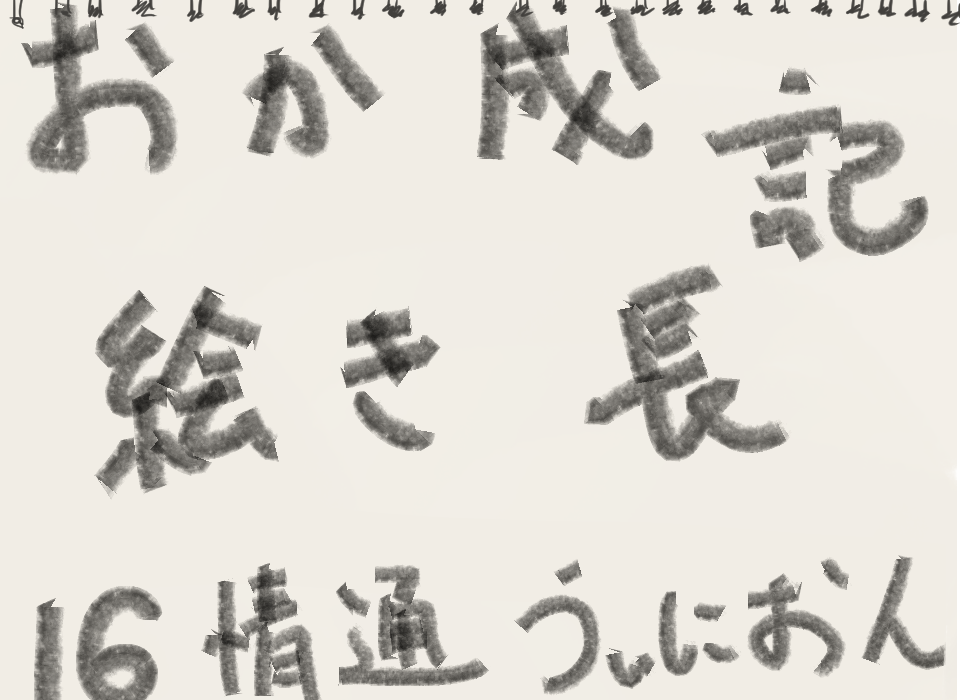 おか成記
絵き長
16情通うにおん